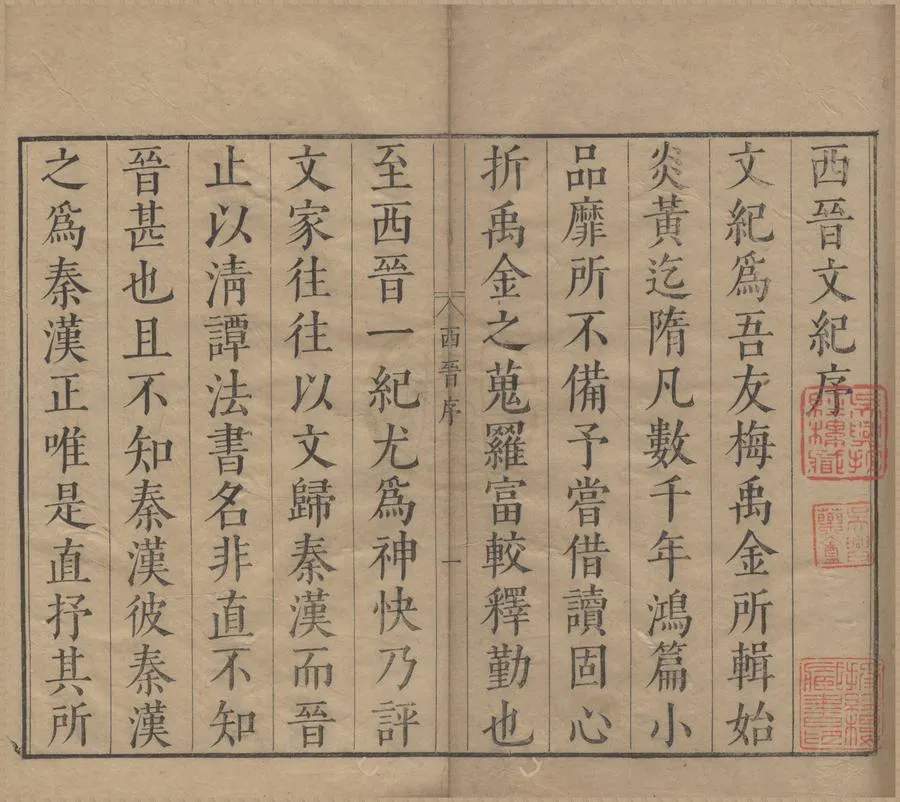 西晉文紀序
文紀爲吾友梅禹金所輯始
炎黃迄隋凡數千年鴻篇小
品靡所不備予嘗借讀固心
折禹金之蒐羅富較釋勤也
西晉序
一
至西晉一紀尤爲神快乃評
文家往往以文歸秦漢而晉
止以淸譚法書名非直不知
晉甚也且不知秦漢彼秦漢
之爲秦漢正唯是直抒其所